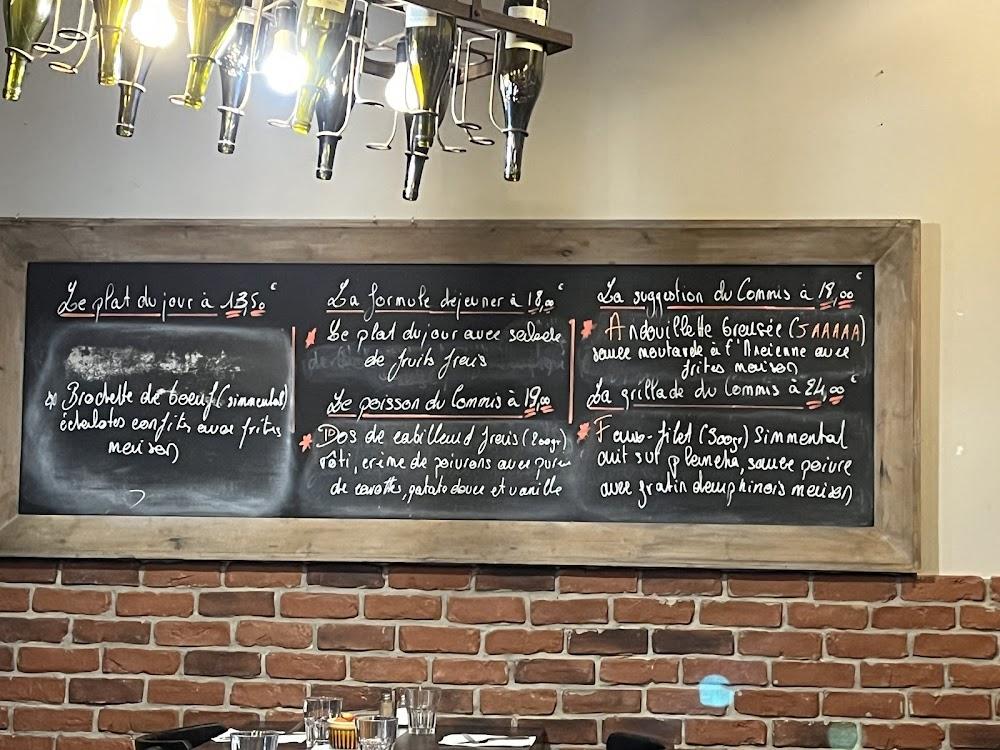 Le plat du jour à 13,50 €
* Brochette de boeuf (simmental)
échalotes confits avec frites
maison
La formule dejeuner à 18,00 €
* Le plat du jour avec salade
de fruits frais
Le poisson du Commis à 19,00
* Dos de cabillaud frais (200gr)
rôti, crème de poivrons avec purée
de carottes, patate douce et vanille
La suggestion du Commis à 18,00 €
* Andouillette braisée (5AAAAA)
sauce moutarde à l'Ancienne avec
frites maison
La grillade du Commis à 24,00 €
* Faux-filet (300gr) Simmental
cuit sur plancha, sauce poivre
avec gratin dauphinois maison